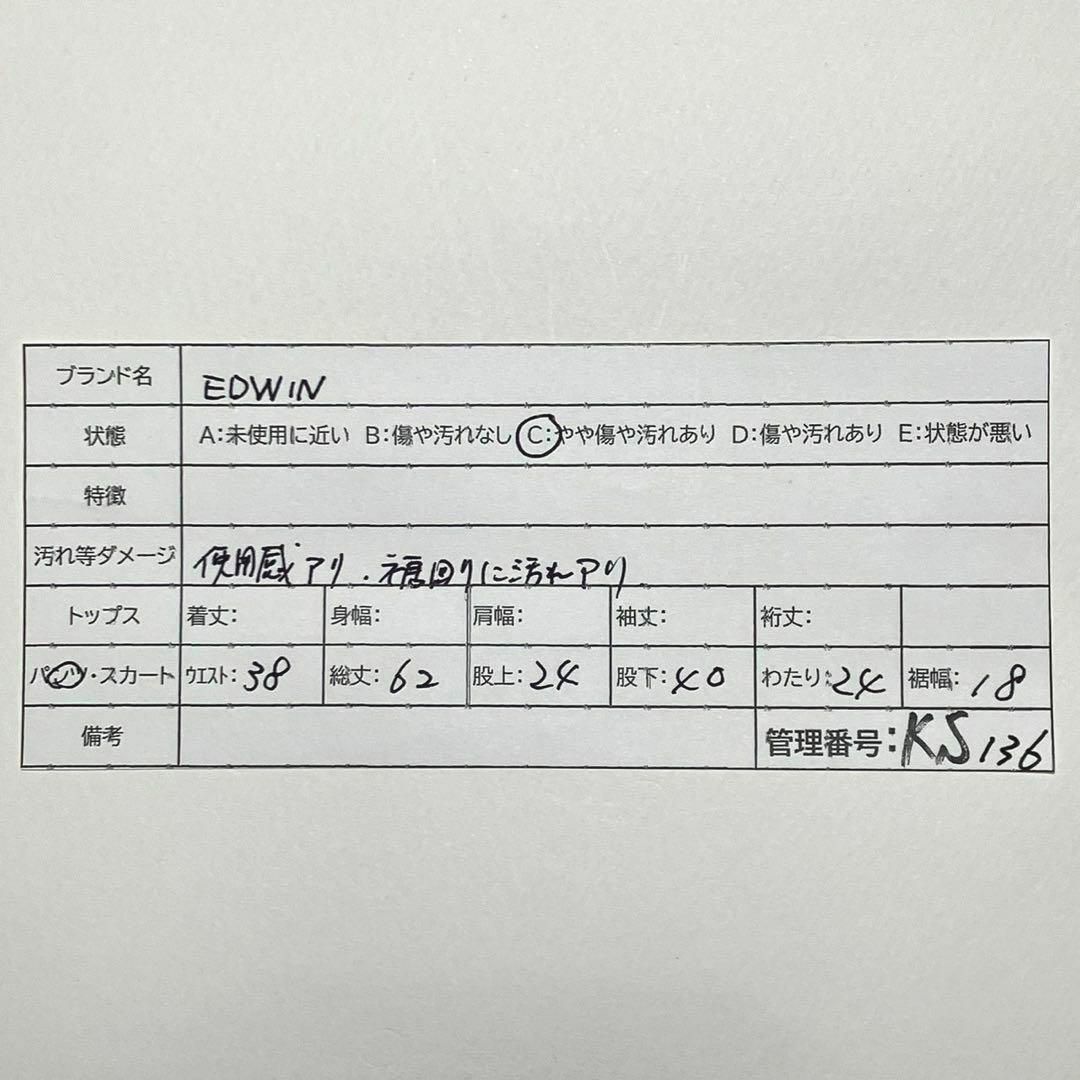 ブランド名 EDWIN
状態 A:未使用に近い B:傷や汚れなし C:やや傷や汚れあり D:傷や汚れあり E:状態が悪い
特徴
汚れ等ダメージ 使用感アリ.裾回りに汚れアリ
トップス 着丈: 身幅: 肩幅: 袖丈: 裄丈:
パンツ・スカート ウエスト:38 総丈:62 股上:24 股下:40 わたり:24 裾幅:18
備考 管理番号:KS136